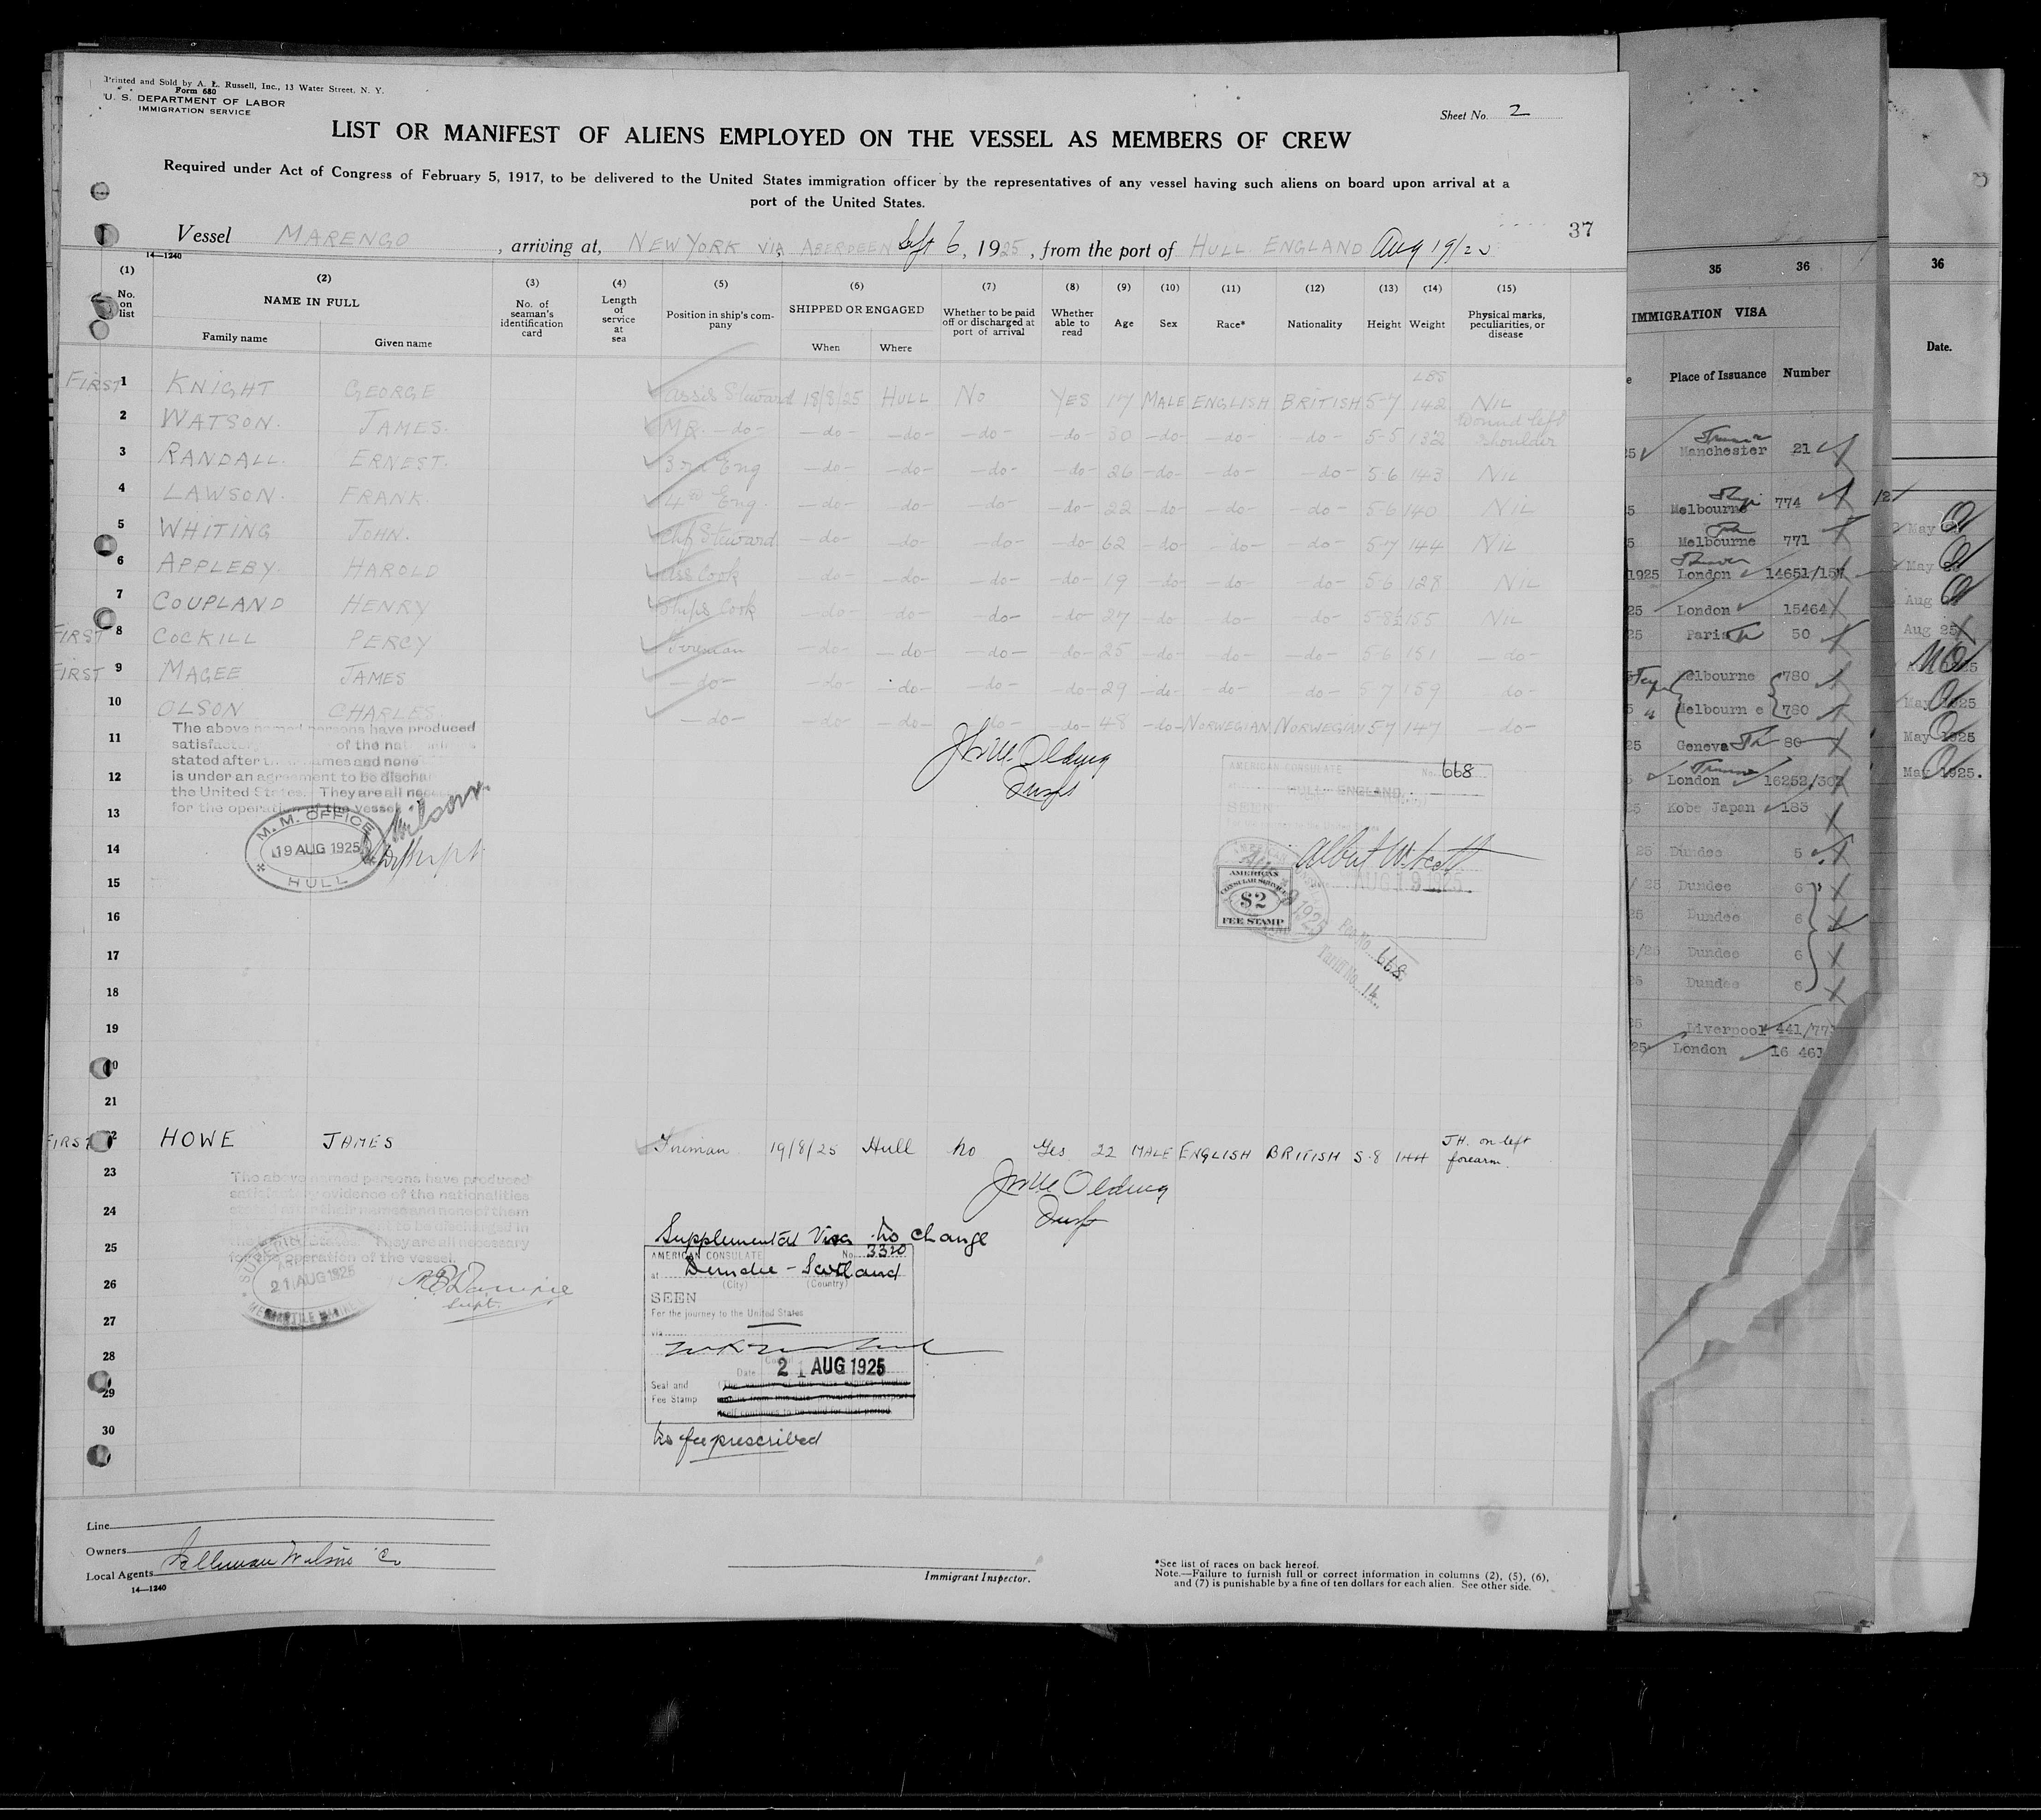 Printed and Sold by A. L. Russell, Inc., 13 Water Street, N. Y.
Form 680
U. S. DEPARTMENT OF LABOR
IMMIGRATION SERVICE
Sheet No. 2
LIST OR MANIFEST OF ALIENS EMPLOYED ON THE VESSEL AS MEMBERS OF CREW
Required under Act of Congress of February 5, 1917, to be delivered to the United States immigration officer by the representatives of any vessel having such aliens on board upon arrival at a
port of the United States.
37
Vessel MARENGO, arriving at, NEW YORK VIA ABERDEEN Sept 6, 1925, from the port of HULL ENGLAND Aug 19/25
14—1240
(1) (2) (3) (4) (5) (6) (7) (8) (9) (10) (11) (12) (13) (14) (15)
No. on list NAME IN FULL No. of seaman's identification card Length of service at sea Position in ship's company SHIPPED OR ENGAGED Whether to be paid off or discharged at port of arrival Whether able to read Age Sex Race* Nationality Height Weight Physical marks, peculiarities, or disease
Family name Given name When Where
LBS
FIRST 1 KNIGHT GEORGE Ass's Steward 18/8/25 HULL No YES 17 MALE ENGLISH BRITISH 5-7 142 NIL
2 WATSON. JAMES. MR. -do- -do- -do- -do- -do- 30 -do- -do- -do- 5-5 132 Wound left shoulder
3 RANDALL. ERNEST. 3rd Eng -do- -do- -do- -do- 26 -do- -do- -do- 5-6 143 NIL
4 LAWSON. FRANK. 4th Eng. -do- -do- -do- -do- 22 -do- -do- -do- 5-6 140 NIL
5 WHITING JOHN. Chf Steward -do- -do- -do- -do- 62 -do- -do- -do- 5-7 144 NIL
6 APPLEBY. HAROLD Ass Cook -do- -do- -do- -do- 19 -do- -do- -do- 5-6 128 NIL
7 COUPLAND HENRY Ships Cook -do- -do- -do- -do- 27 -do- -do- -do- 5-8½ 155 NIL
FIRST 8 COCKILL PERCY Fireman -do- -do- -do- -do- 25 -do- -do- -do- 5-6 151 -do-
FIRST 9 MAGEE JAMES -do- -do- -do- -do- -do- 29 -do- -do- -do- 5-7 159 -do-
10 OLSON CHARLES -do- -do- -do- -do- -do- 48 -do- NORWEGIAN NORWEGIAN 5-7 147 -do-
The above named persons have produced
satisfactory of the nationalities
stated after their names and none
is under an agreement to be discharged
the United States. They are all necessary
for the operation of the vessel
11
12
13
14
15
16
17
18
19
20
21
M. M. OFFICE
19 AUG 1925
HULL
Wilson
AMERICAN CONSULATE No. 668
at HULL ENGLAND
SEEN
For the journey to the United States
Albert W. Scott
AUG 19 1925
AMERICAN
CONSULAR SERVICE
$2
FEE STAMP
Fee No. 668
Tariff No. 14
FIRST 22 HOWE JAMES Fireman 19/8/25 Hull No Yes 22 MALE ENGLISH BRITISH 5-8 144 J H. on left forearm.
The above named persons have produced
satisfactory evidence of the nationalities
stated after their names and none of them
to be discharged in
They are all necessary
for the operation of the vessel.
23
24
25
26
27
28
29
30
21 AUG 1925
MERCANTILE MARINE
Supt.
Supplemental Visa No change
AMERICAN CONSULATE No. 3320
at Dundee - Scotland
(City) (Country)
SEEN
For the journey to the United States
via
Date 21 AUG 1925
Seal and
Fee Stamp
No fee prescribed
Line
Owners
Local Agents Ellerman Wilsons Co
14—1240
Immigrant Inspector.
*See list of races on back hereof.
Note.—Failure to furnish full or correct information in columns (2), (5), (6),
and (7) is punishable by a fine of ten dollars for each alien. See other side.
35 36
IMMIGRATION VISA
Place of Issuance Number
Manchester 21
Melbourne 774
Melbourne 771
1925 London 14651/15
London 15464
Paris 50
Melbourne 780
Melbourne 780
Geneva 80
London 16252/30
Kobe Japan 183
Dundee 5
Dundee 6
Dundee 6
Dundee 6
Dundee 6
Liverpool 441/77
London 16 461
36
Date.
May
May
Aug
Aug 25
May 1925
May 1925
May 1925.